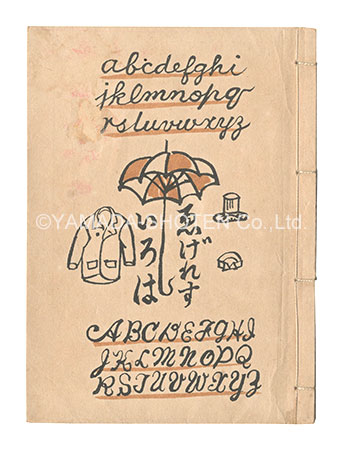 abcdefghi
jklmnopq
rstuvwxyz
ゑげれす
いろは
©YAMADA SHOTEN Co.,Ltd.
ABCDEFGHI
JKLMNOPQ
RSTUVWXYZ